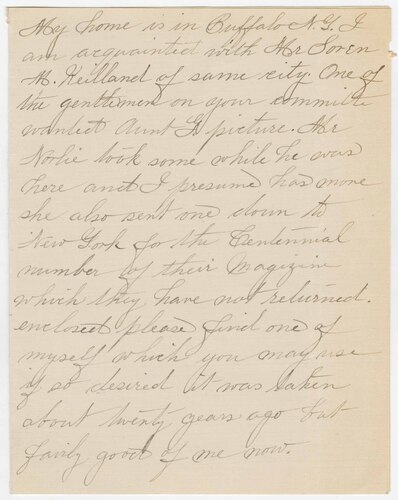 My home is in Buffalo N.Y. I
am acquainted with Mr Soren
M. Keilland of same city. One of
the gentlemen on your committe
wanted Aunt G picture. Mr
Norlie took some while he was
here and I presume has more
she also sent one down to
New York for the Centennial
number of their Magizine
which they have not returned.
enclosed please find one of
myself which you may use
if so desired it was taken
about twenty years ago but
fairly good of me now.